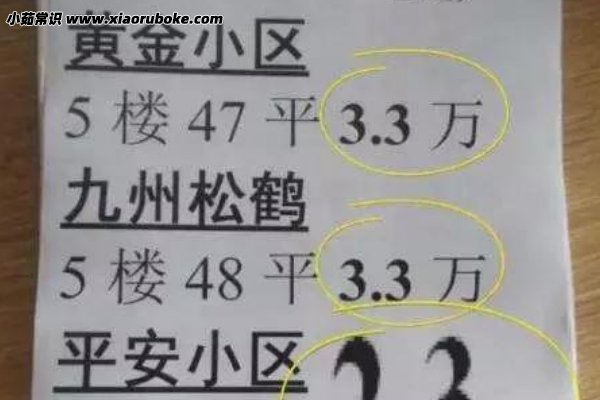 小茹常识 www.xiaoruboke.com
黄金小区
5 楼 47 平 3.3 万
九州松鹤
5 楼 48 平 3.3 万
平安小区